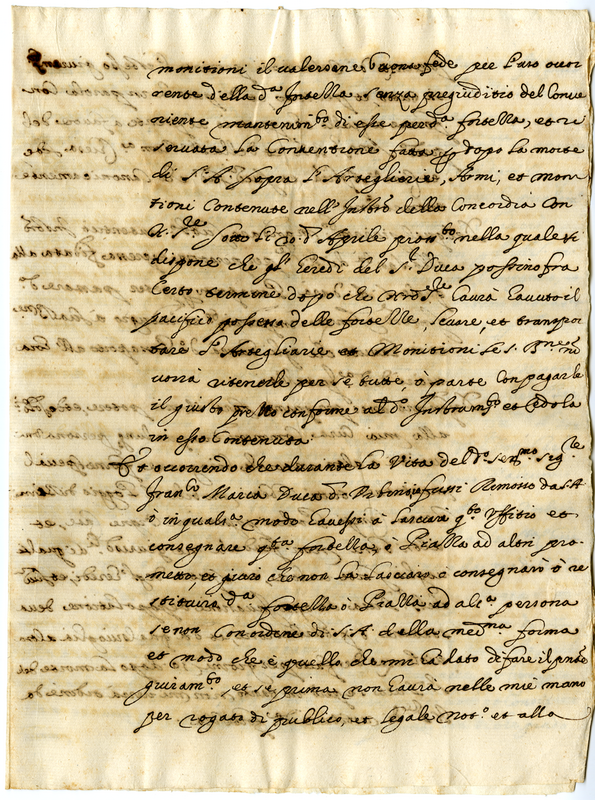 monitioni il valersene buona fede per l'uso ocor
rente della d.a fortella senza pregiuditio del Conve
niente mantenim.to di esse per d.a fortella, et ri
servata la Conventione fatta dopo la morte
di S. A. sopra l'Arteglierie, Armi, et moni
tioni Contenute nell' Instro della Concordia Con
sotto li 20 d'Aprile nella quale si
dispone che gl' heredi del S.r Duca possino fra
Certo termine dopo che havuto il
pacifico possesso delle fortelle, levare, et transpor
tare l'Artegliarie et Monitioni se S. B.ne no
vorrà ritenerle per se tutte, ò parte con pagarle
il giusto pretio conforme al d.o Instrom.to et Cedola
in esso Contenuta.
Et occorendo che durante la Vita del d.o Ser.mo Sig.re
Fran.co Maria Duca d'Urbino io fussi Remosso da S. A.
ò in qualsi.a modo havessi à lasciare q.to Uffitio et
consegnare q.ta fortella, ò Pialla ad altri pro
metto, et giuro che non la lasciarò ò consegnarò ò re
stituirò d.a fortella ò Pialla ad alc.a persona
se non Con ordine di S. A. della med.ma forma
et modo che è quella che mi ha dato di fare il pnte
giuram.to et se prima non haurà nelle mie mano
per rogato di publico, et legale Not.o et alla